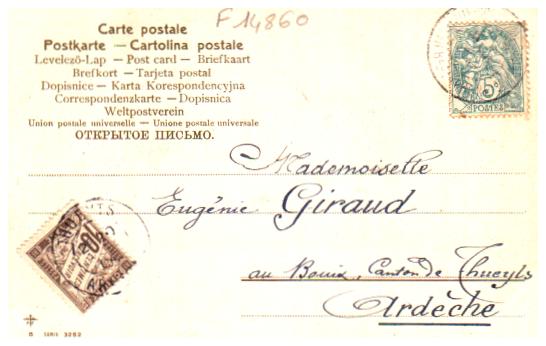 F 14860
Carte postale
Postkarte — Cartolina postale
Levelező-Lap — Post card — Briefkaart
Brefkort — Tarjeta postal
Dopisnice — Karta Korespondencyjna
Correspondenzkarte — Dopisnica
Weltpostverein
Union postale universelle — Unione postale universale
ОТКРЫТОЕ ПИСЬМО.
5c
POSTES
Mademoiselle
Eugénie Giraud
au Bouix, Canton de Thueyts
Ardèche
SERIE 3262